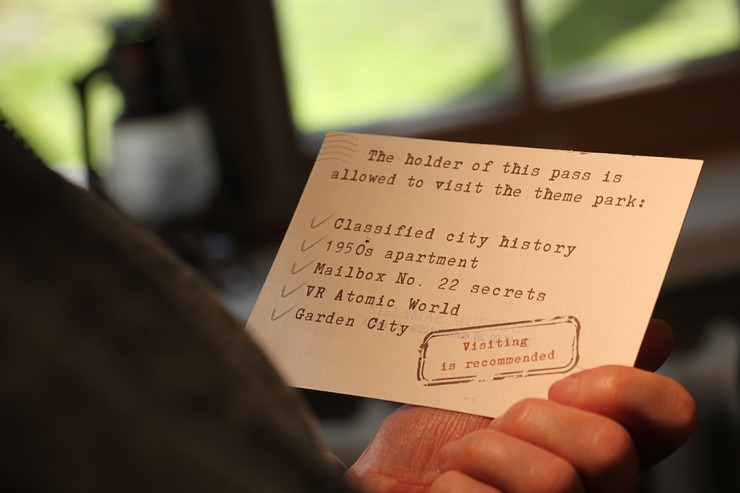 The holder of this pass is
allowed to visit the theme park:
Classified city history
1950s apartment
Mailbox No. 22 secrets
VR Atomic World
Garden City
Visiting
is recommended